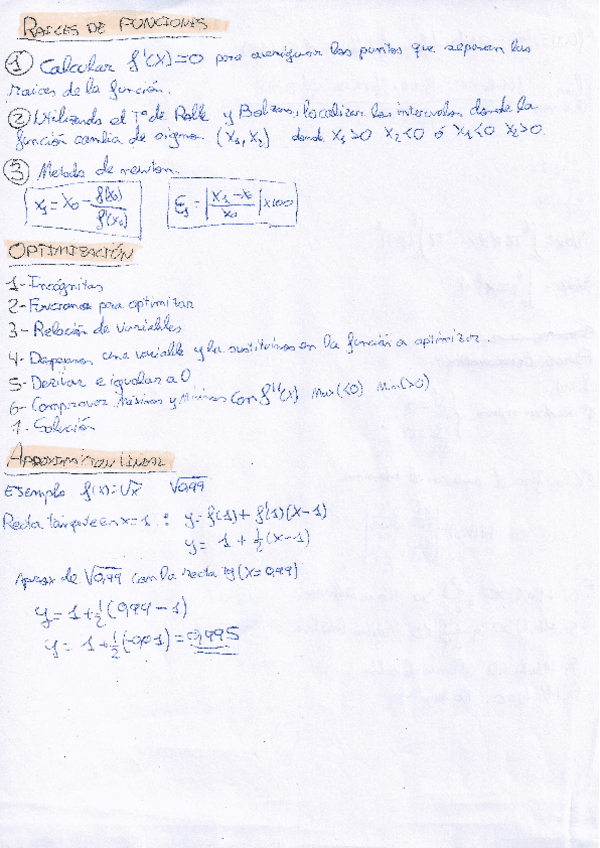 RAICES DE FUNCIONES
① Calcular f'(x)=0 para averiguar los puntos que separan las
raices de la función.
② Utilizando el Tª de Rolle y Bolzano, localizar los intervalos donde la
función cambia de signo. (x₁, x₂) donde x₁>0 x₂<0 ó x₁<0 x₂>0.
③ Metodo de newton.
x₁ = x₀ - f(x₀)/f'(x₀) ε₁ = |(x₁-x₀)/x₀| x100
OPTIMIZACIÓN
1- Incógnitas
2- Funciones para optimizar
3- Relación de variables
4- Despejamos una variable y la sustituimos en la función a optimizar.
5- Derivar e igualar a 0
6- Comprovar Máximos y Mínimos con f''(x) Max(<0) Min(>0)
7- Solución
APROXIMACION LINEAL
Ejemplo f(x)=√x √0,99
Recta tangente en x=1 : y=f(1)+f'(1)(x-1)
y= 1 + 1/2 (x-1)
Aprox de √0,99 con la recta tg (x=0,99)
y=1+1/2(0,99-1)
y= 1+1/2(-0,01)=0,995